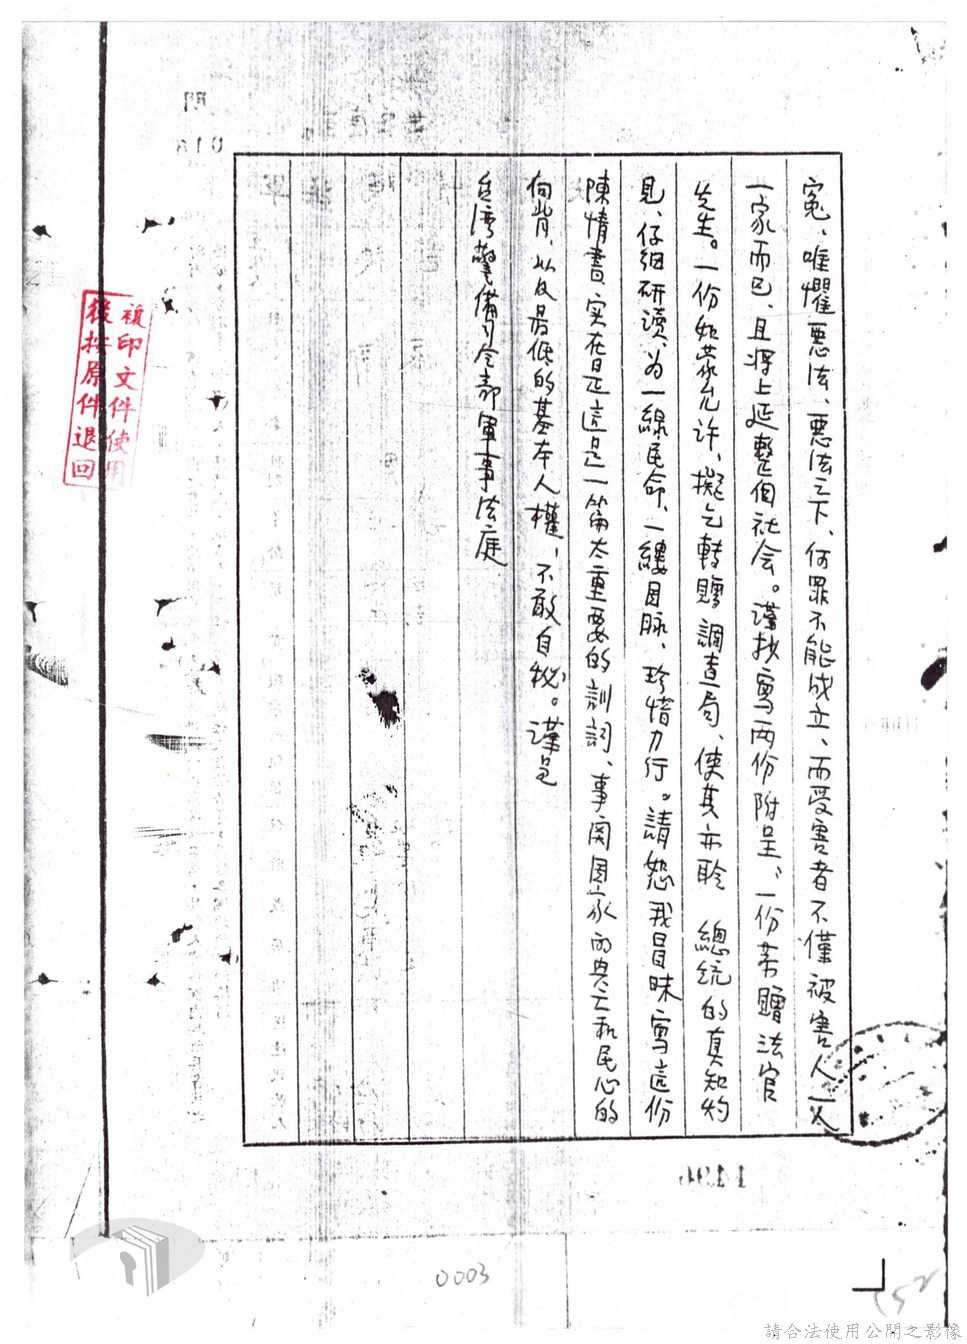 冤、唯懼惡法、惡法之下、何罪不能成立、而受害者不僅被害人一人
一家而已、且將上延整個社会。謹抄寫兩份附呈、一份恭贈法官
先生。一份如蒙允許、擬乞轉贈調查局、使其亦聆 總統的真知灼
見、仔細研讀、为一線民命、一縷国脉、珍惜力行。請恕我冒昧寫這份
陳情書、实在日正這是一篇太重要的訓詞、事関国家的興亡和民心的
向背、以及最低的基本人權、不敢自秘。謹呈
台湾警備司令部軍事法庭
複印文件使用
後按原件退回
0003
152
請合法使用公開之影像